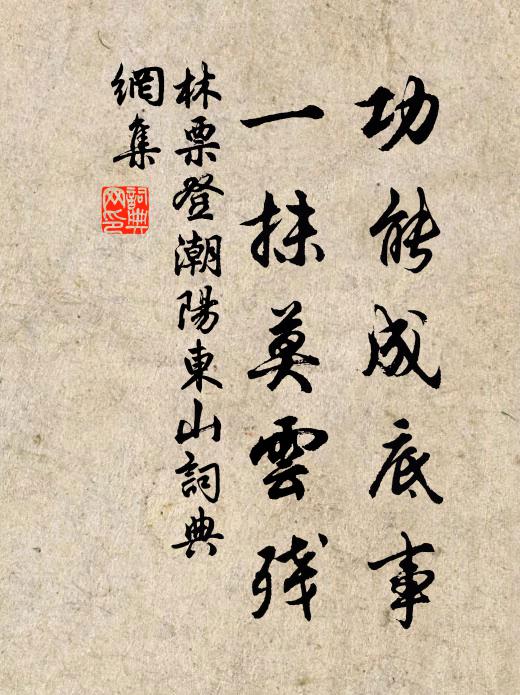 功能成底事
一抹莫雲残
林栗登潮陽東山詞典
網集
詞典
网印